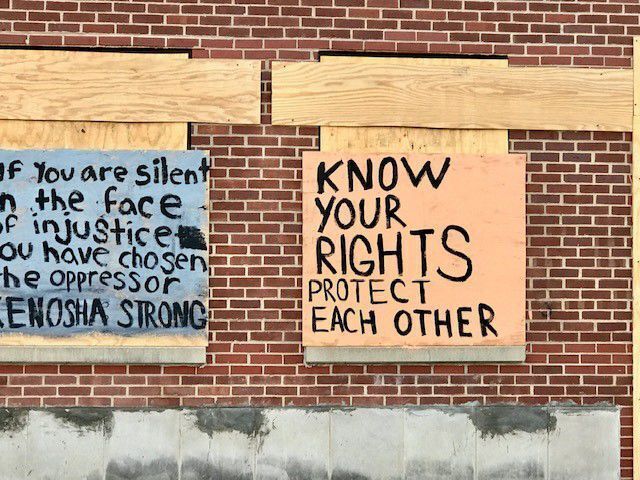 If You are silent
n the face
f injustice
ou have chosen
he oppressor
ENOSHA STRONG
KNOW
YOUR
RIGHTS
PROTECT
EACH OTHER